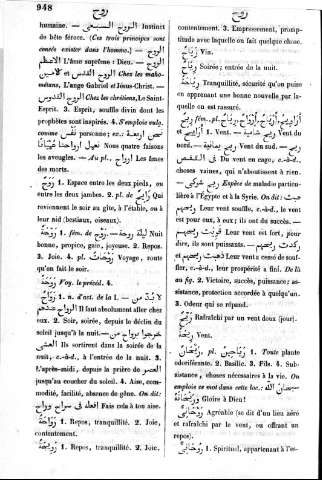 948
روح
روح
humaine. — الروح السبعي Instinct
de bête féroce. (Ces trois principes sont
censés exister dans l'homme.) — الروح
الاعظم L'âme suprême : Dieu. — الروح
الامين et روح القدس Chez les maho-
métans, L'ange Gabriel et Jésus-Christ. —
الروح القدوس Chez les chrétiens, Le Saint-
Esprit. 3. Esprit, souffle divin dont les
prophètes sont inspirés. 4. S'emploie vulg.
comme نفس personne ; ex. :
Nous quatre faisons
les aveugles. — Au pl., ارواح Les âmes
des morts.
روح 1. Espace entre les deux pieds, ou
entre les deux jambes. 2. pl. de رايح Qui
reviennent le soir au gîte, à l'étable, ou à
leur nid (bestiaux, oiseaux).
روحة 1. fém. de روح. — ليلة روحة Nuit
bonne, propice, gaie, joyeuse. 2. Repos.
3. Joie. 4. pl. روحات Voyage, route
qu'on fait le soir.
روحة Voy. le précéd. 4.
رواح 1. n. d'act. de la I. —
Il faut absolument aller chez
eux. 2. Soir, soirée, depuis le déclin du
soleil jusqu'à la nuit. —
Ils sortirent dans la soirée de
la nuit, c.-à-d., à l'entrée de la nuit. 3.
L'après-midi, depuis la prière de العصر
jusqu'au coucher du soleil. 4. Aise, com-
modité, facilité, absence de gêne. On dit :
افعله في سراح ورواح Fais cela à ton aise.
رواحة 1. Repos, tranquillité. 2. Joie,
contentement.
1. Repos, tranquillité. 2. Joie,
contentement. 3. Empressement, promp-
titude avec laquelle on fait quelque chose.
رياح Vin.
Soirée ; entrée de la nuit.
Tranquillité, sécurité qu'on puise
en apprenant une bonne nouvelle par la-
quelle on est rassuré.
ريح fém., pl. ارواح, ارياح, رياح, ريح,
ارايح et اراويح 1. Vent. — ريح شامية Vent du
nord. — Vent du sud. —
في القفص Du vent en cage, c.-à-d.,
choses vaines, qui n'aboutissent à rien. —
ريح شوكي Espèce de maladie particu-
lière à l'Égypte et à la Syrie. On dit :
Leur vent souffle, c.-à-d., le vent
est pour eux, à eux ; ils ont du succès. —
Leur vent est fort, pour
dire, ils sont puissants. — ركدت ريحهم
Leur vent a cessé de souf-
fler, c.-à-d., leur prospérité a fini. De là
au fig. 2. Victoire, succès, puissance ; as-
sistance, protection accordée à quelqu'un.
3. Odeur qui se répand.
Rafraîchi par un vent doux (jour).
ريحة Vent.
ريحان pl. رياحين 1. Toute plante
odoriférante. 2. Basilic. 3. Fils. 4. Sub-
sistance, choses nécessaires à la vie. On
emploie ce mot dans cette loc. : سبحان الله
وريحانه Gloire à Dieu !
Agréable (se dit d'un lieu aéré
et rafraîchi par le vent, ou offrant un
repos).
روحاني 1. Spirituel, appartenant à l'es-